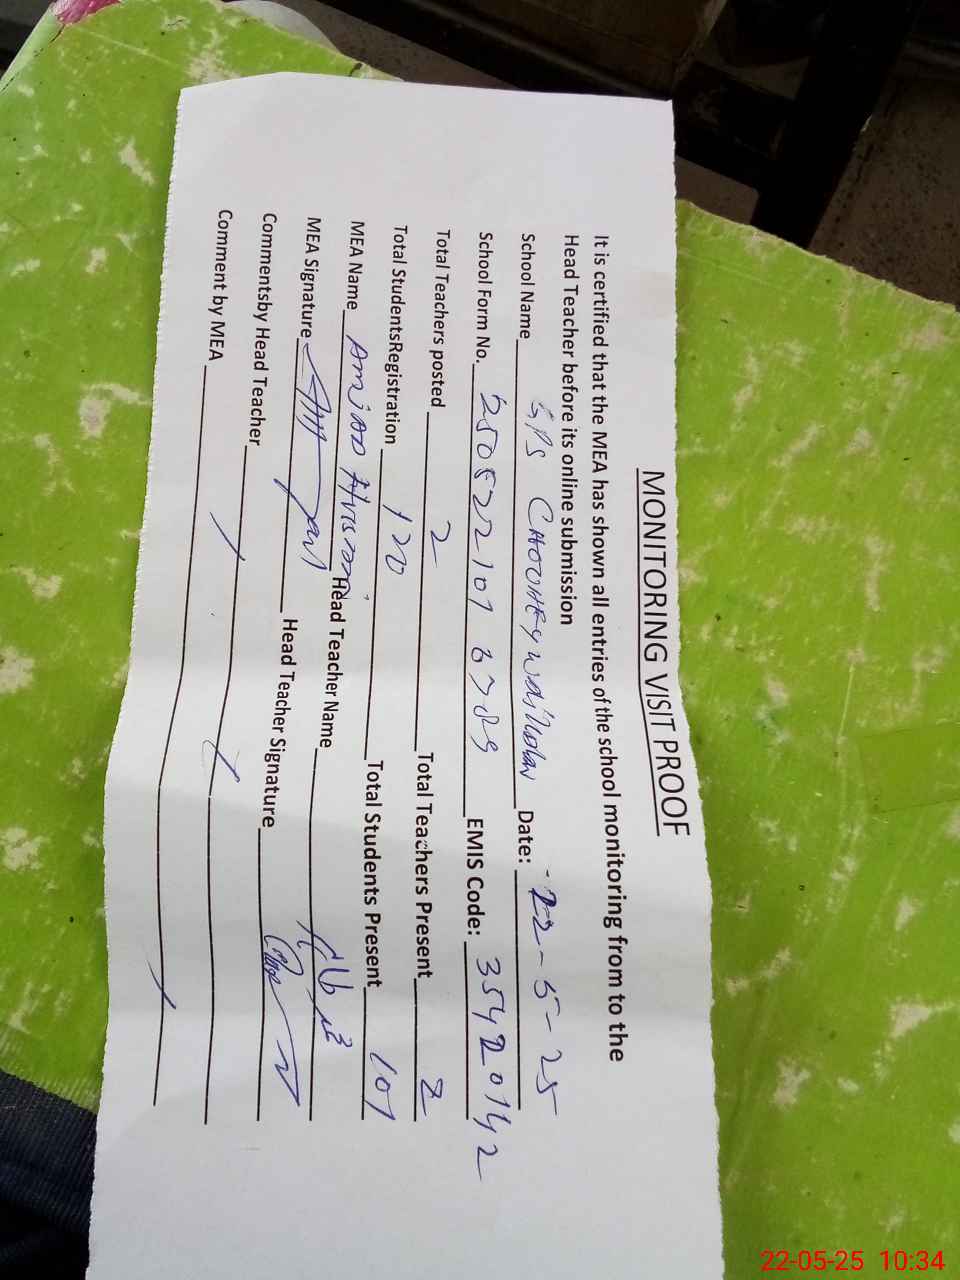 MONITORING VISIT PROOF
It is certified that the MEA has shown all entries of the school monitoring from to the
Head Teacher before its online submission
School Name GPS Date: 22-5-25
School Form No. EMIS Code: 35420142
Total Teachers posted 2 Total Teachers Present 2
Total StudentsRegistration 120 Total Students Present 101
MEA Name Head Teacher Name
MEA Signature Head Teacher Signature
Commentsby Head Teacher
Comment by MEA
22-05-25 10:34